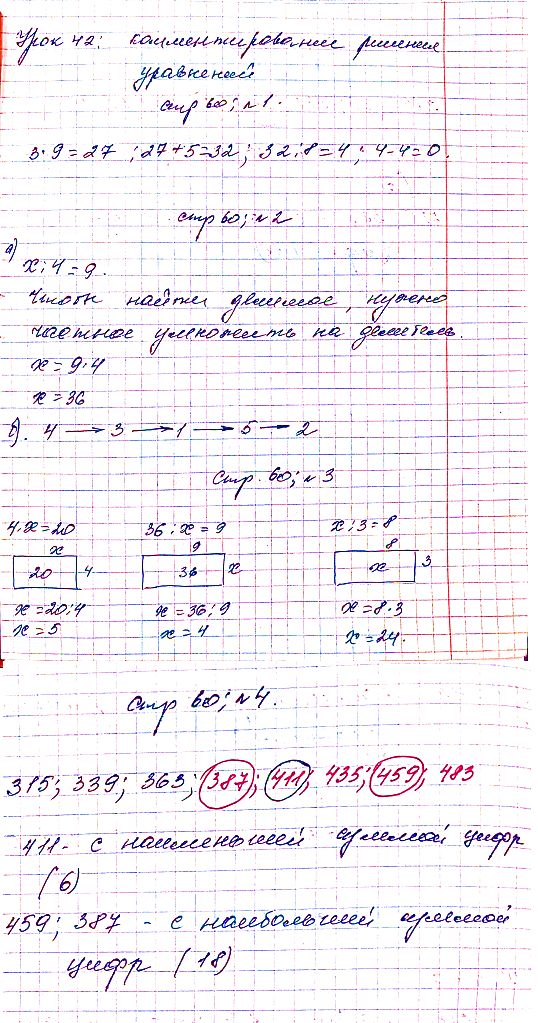 Урок 42: комментирование решения
уравнений
стр 60; №1.
3·9=27 ; 27+5=32; 32:8=4; 4-4=0.
стр 60; №2
а)
x:4=9.
Чтобы найти делимое, нужно
частное умножить на делитель.
x=9·4
x=36
б). 4 → 3 → 1 → 5 → 2
стр. 60; №3
4·x=20 36:x=9 x:3=8
x 9 8
20 4 36 x x 3
x=20:4 x=36:9 x=8·3
x=5 x=4 x=24.
стр 60; №4.
315; 339; 363; 387; 411; 435; 459; 483
411- с наименьшей суммой цифр
(6)
459; 387 - с наибольшей суммой
цифр (18)